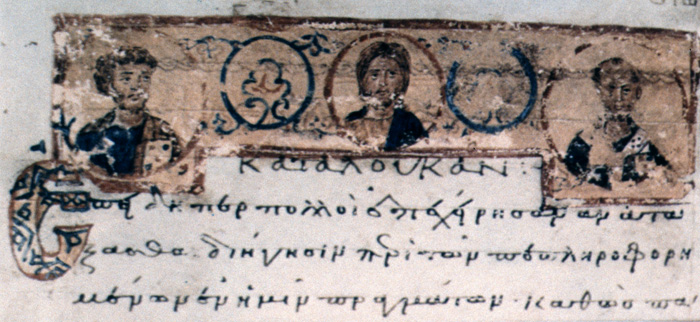 ΚΑΤΑ ΛΟΥΚΑΝ:
Ἐπειδήπερ πολλοὶ ἐπεχείρησαν ἀνατα
ξασθαι διήγησιν περὶ τῶν πεπληροφορη
μένων ἐν ἡμῖν πραγμάτων· καθὼς πα